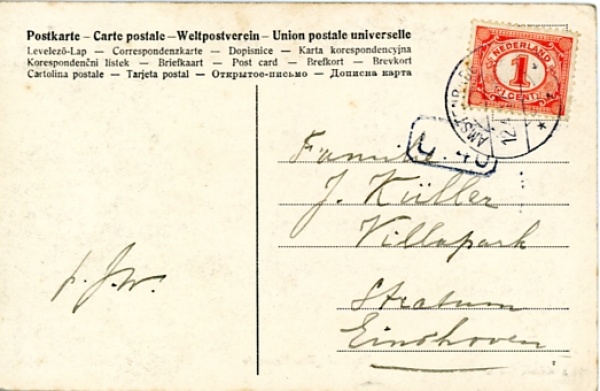 Postkarte – Carte postale – Weltpostverein – Union postale universelle
Levelező-Lap — Correspondenzkarte — Dopisnice — Karta korespondencyjna
Korespondenční lístek — Briefkaart — Post card — Brefkort — Brevkort
Cartolina postale — Tarjeta postal — Открытое-письмо — Дописна карта
NEDERLAND
1
CENT
AMSTERDAM
12.
Familie
J. Küller
Villapark
Stratum
Eindhoven
p. J.W.